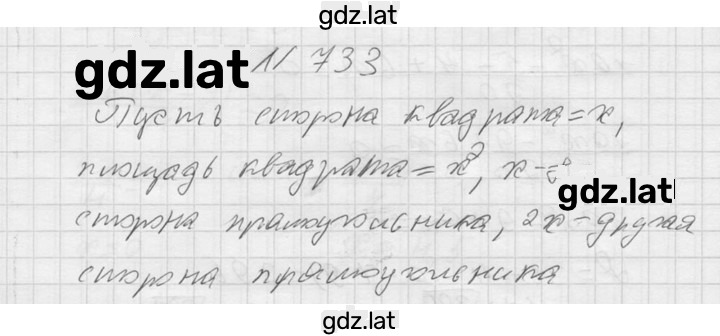 gdz.lat
№ 733
gdz.lat
Пусть сторона квадрата = x,
площадь квадрата = x², x -
gdz.lat
сторона прямоугольника, 2x - другая
сторона прямоугольника
gdz.lat